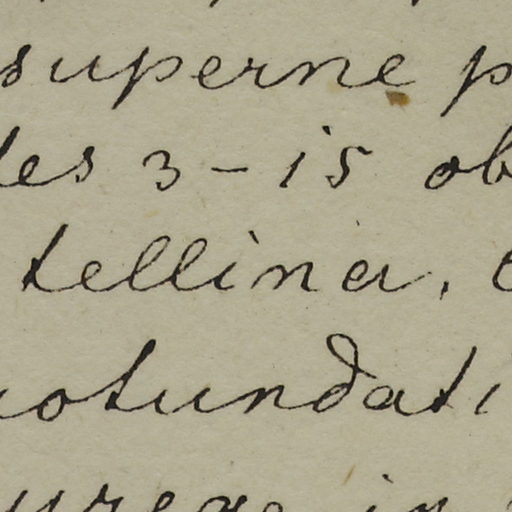 superne p
les 3-15 ob
tellina,
rotundati
in